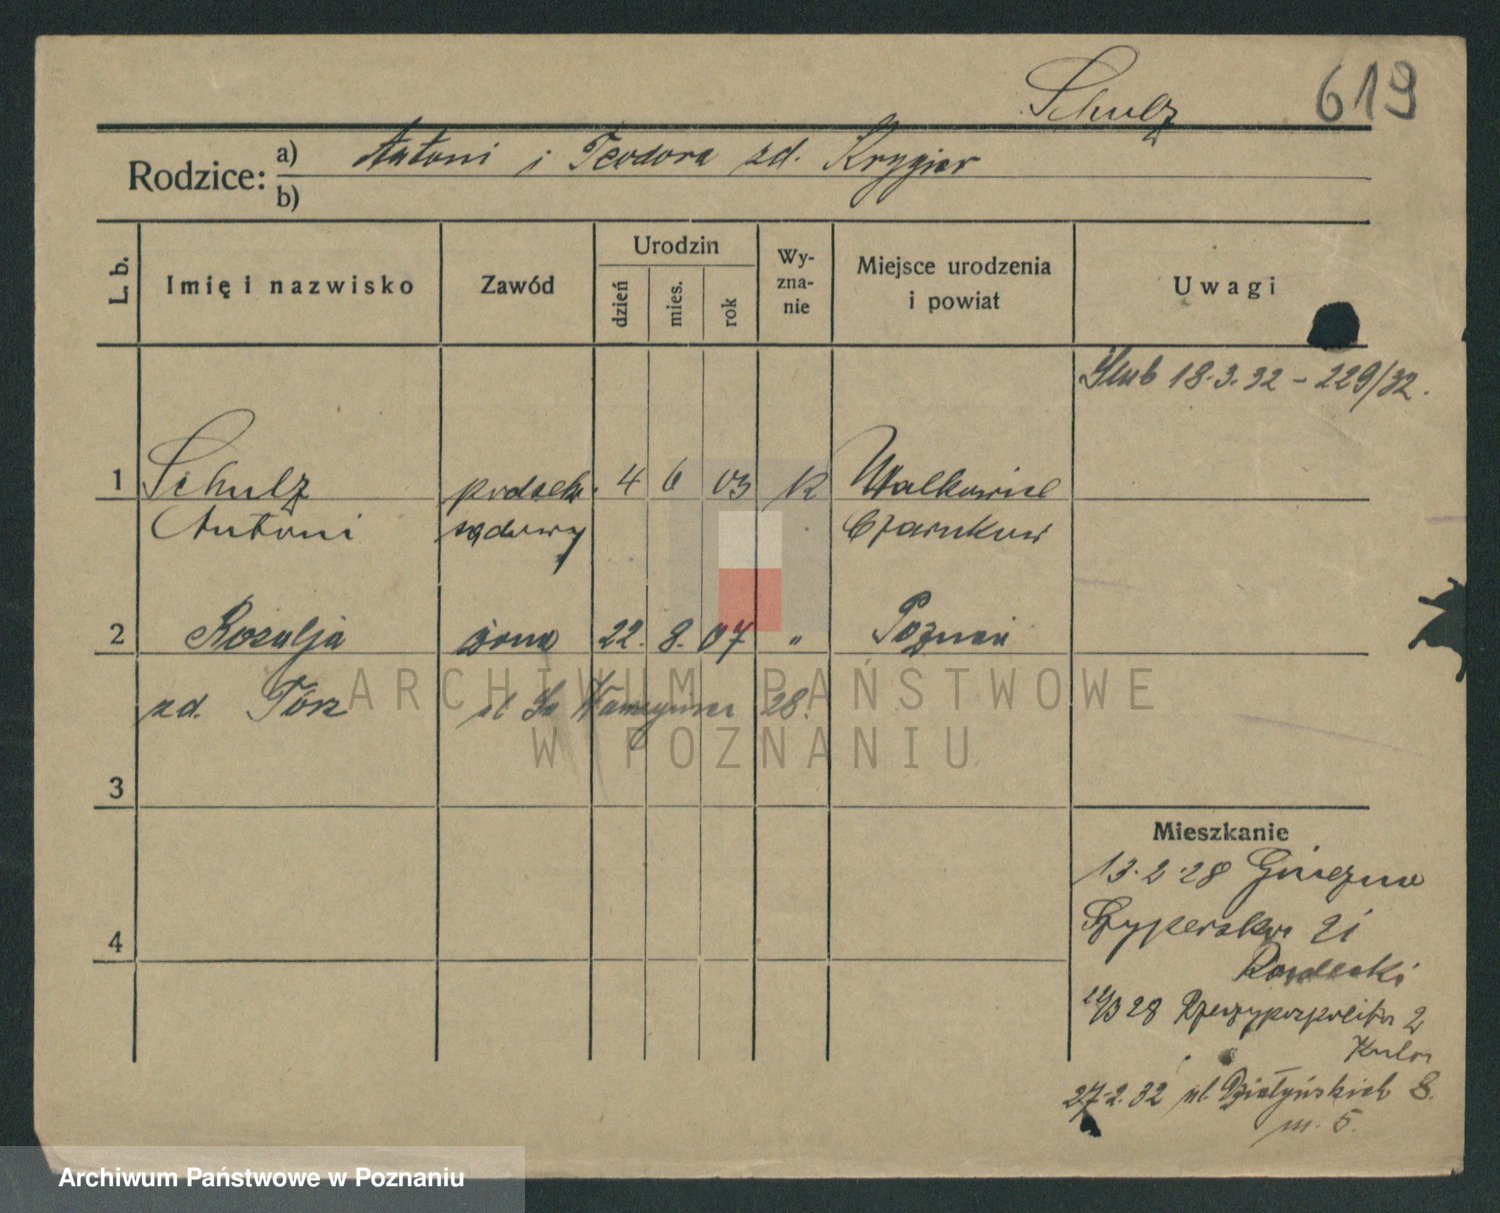 Schulz 619
Rodzice: a) Antoni i Teodora zd. Krygier
b)
L. b. Imię i nazwisko Zawód Urodzin dzień mies. rok Wyznanie Miejsce urodzenia i powiat Uwagi
Ślub 18.3.32 – 229/32.
1 Schulz podsekr. 4 6 03 k Walkowice
Antoni sądowy Czarnków
2 Rozalja żona 22. 8. 07 " Poznań
zd. Torz ul 28.
3
Mieszkanie
13.2.28 Gniezno
21
4
28 Rzeczypospolitej 2
27.2.32 ul. Działyńskich 8.
m. 5.
ARCHIWUM PAŃSTWOWE
W POZNANIU
Archiwum Państwowe w Poznaniu